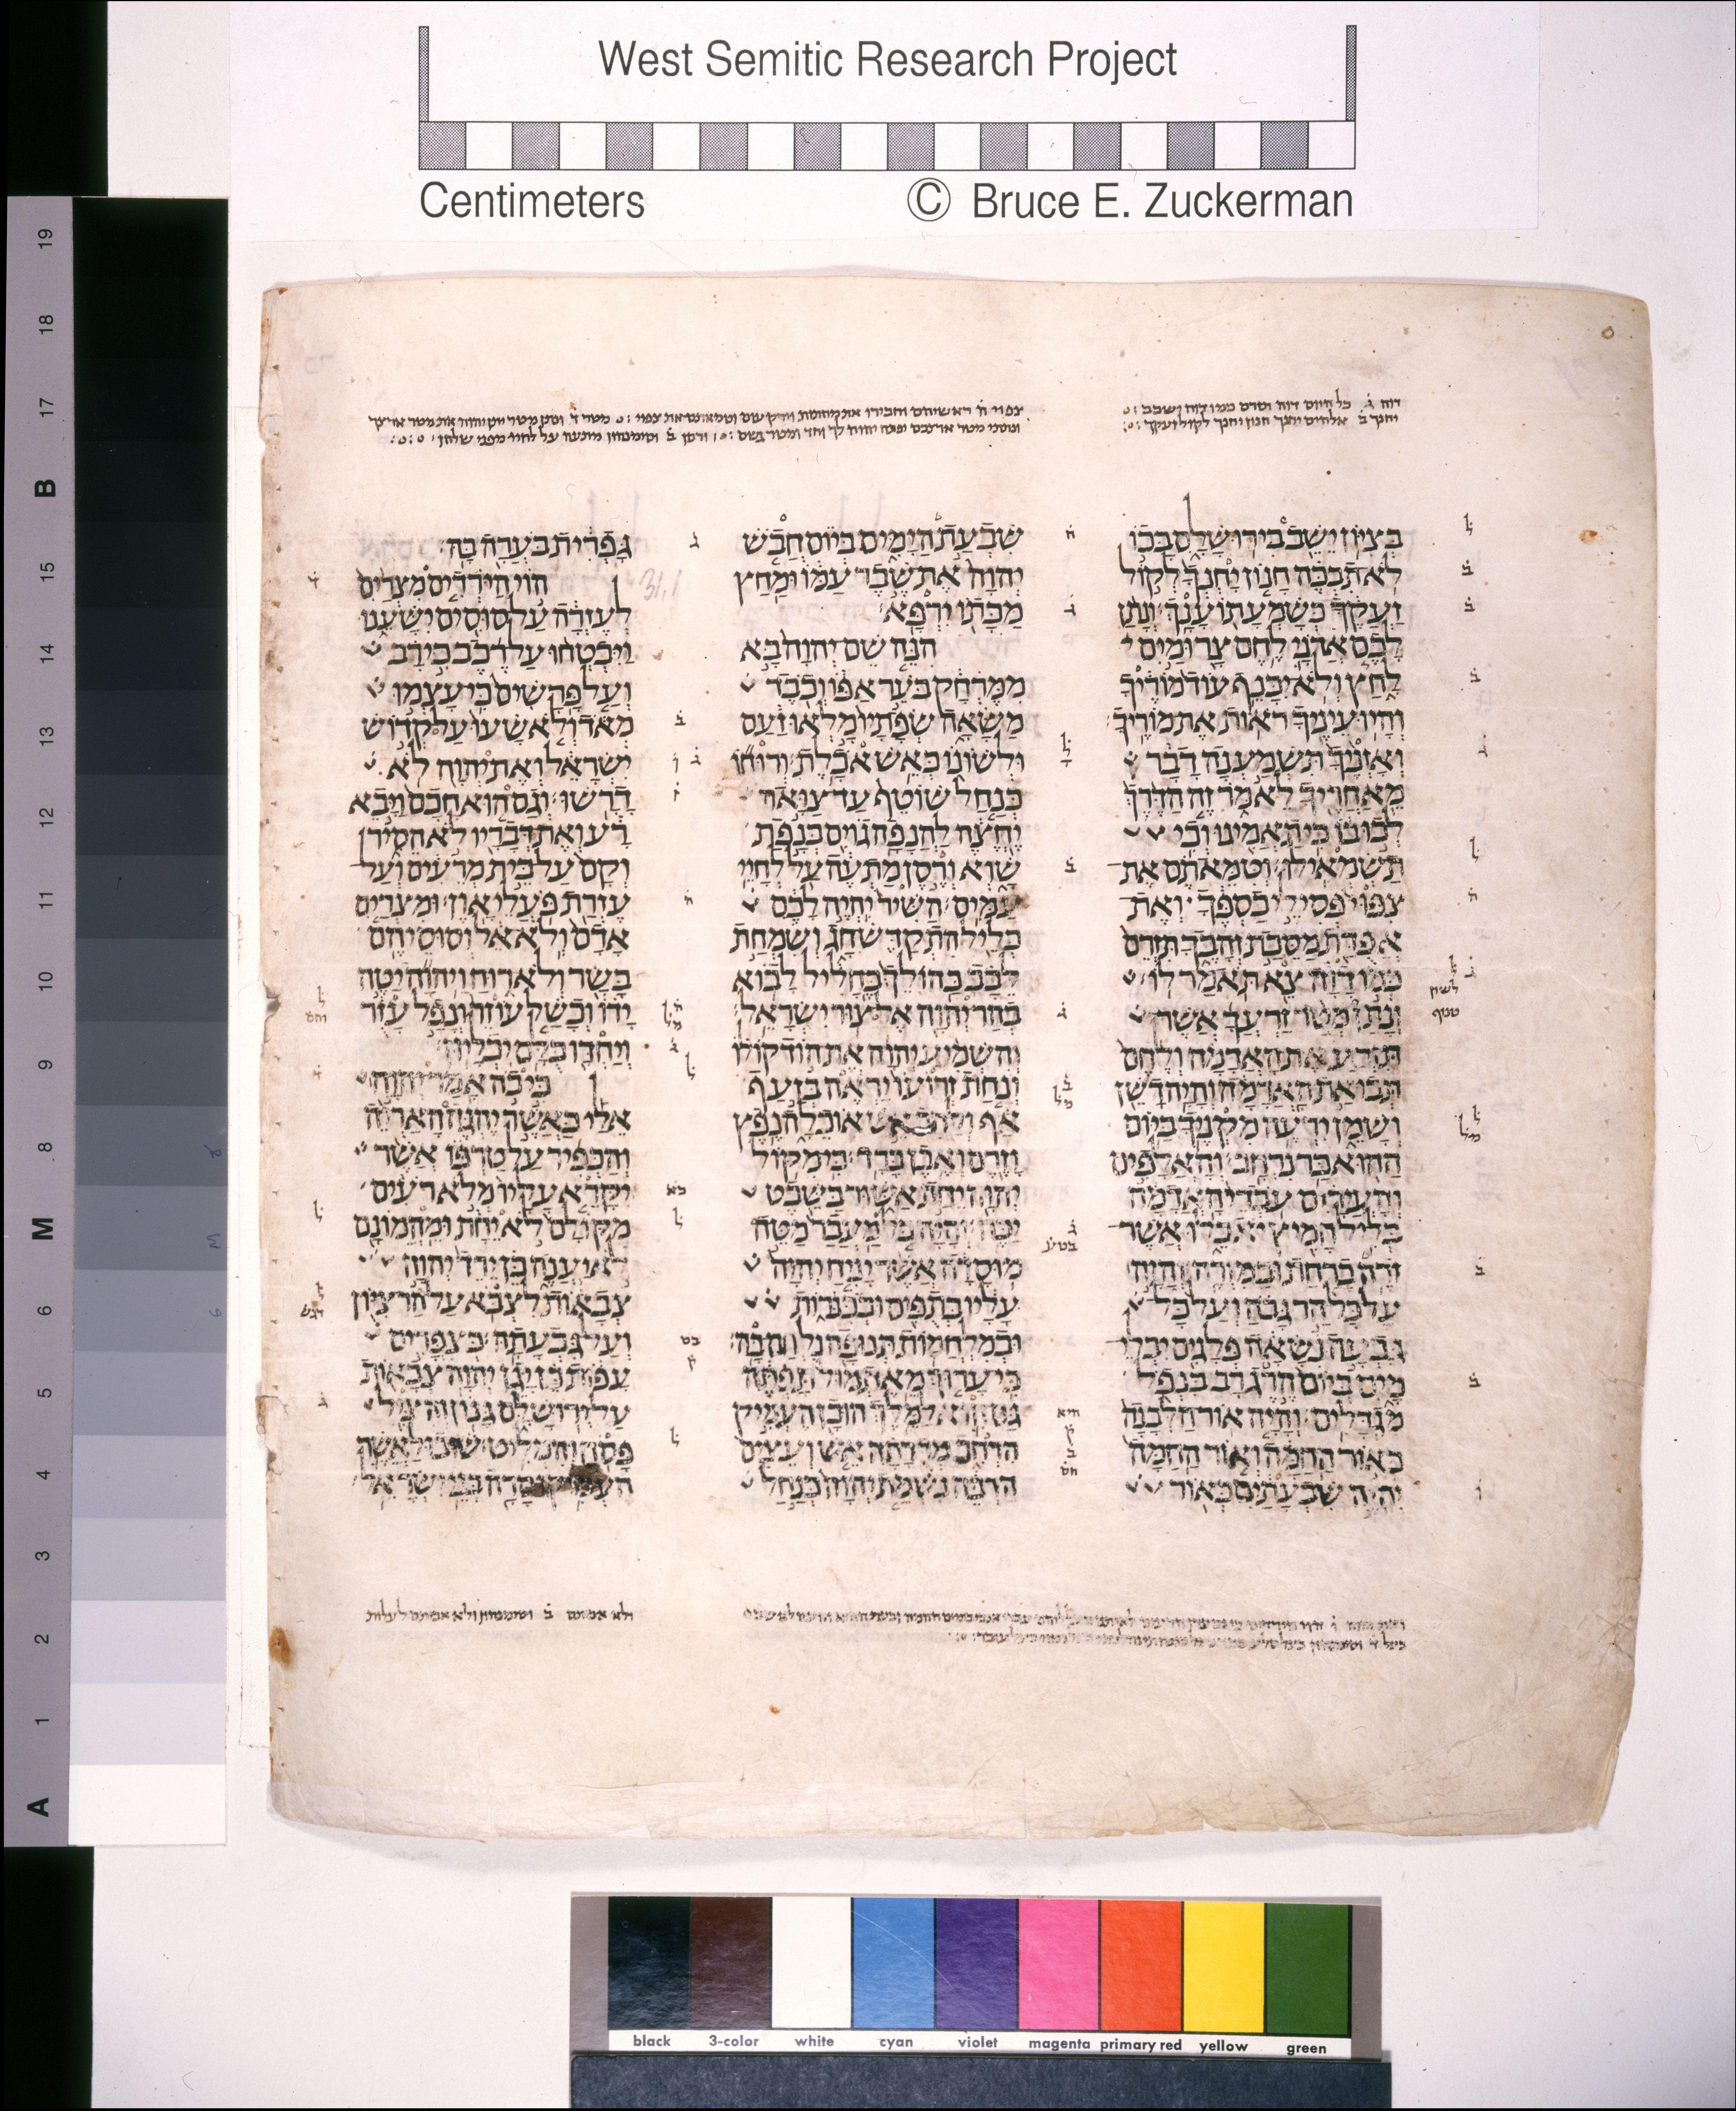 West Semitic Research Project
Centimeters © Bruce E. Zuckerman
בציון ישב בירושלם בכו
לא תבכה חנון יחנך לקול
זעקך כשמעתו ענך ונתן
לכם אדני לחם צר ומים
לחץ ולא יכנף עוד מוריך
והיו עיניך ראות את מוריך
ואזניך תשמענה דבר
מאחריך לאמר זה הדרך
לכו בו כי תאמינו וכי
תשמאילו וטמאתם את
צפוי פסילי כספך ואת
אפדת מסכת זהבך תזרם
כמו דוה צא תאמר לו
ונתן מטר זרעך אשר
תזרע את האדמה ולחם
תבואת האדמה והיה דשן
ושמן ירעה מקניך ביום
ההוא כר נרחב והאלפים
והעירים עבדי האדמה
בליל חמיץ יאכלו אשר
זרה ברחת ובמזרה והיה
על כל הר גבה ועל כל
גבעה נשאה פלגים יבלי
מים ביום הרג רב בנפל
מגדלים והיה אור הלבנה
כאור החמה ואור החמה
יהיה שבעתים כאור
שבעת הימים ביום חבש
יהוה את שבר עמו ומחץ
מכתו ירפא
הנה שם יהוה בא
ממרחק בער אפו וכבד
משאה שפתיו מלאו זעם
ולשונו כאש אכלת ורוחו
כנחל שוטף עד צואר
יחצה להנפה גוים בנפת
שוא ורסן מתעה על לחיי
עמים השיר יהיה לכם
כליל התקדש חג ושמחת
לבב כהולך בחליל לבוא
בהר יהוה אל צור ישראל
והשמיע יהוה את הוד קולו
ונחת זרועו יראה בזעף
אף ולהב אש אוכלה נפץ
וזרם ואבן ברד כי מקול
יהוה יחת אשור בשבט
יכה והיה כל מעבר מטה
מוסדה אשר יניח יהוה
עליו בתפים ובכנרות
ובמלחמות תנופה נלחם בה
כי ערוך מאתמול תפתה
גם הוא למלך הוכן העמיק
הרחב מדרתה אש ועצים
הרבה נשמת יהוה כנחל
גפרית בערה בה
31,1
הוי הירדים מצרים
לעזרה על סוסים ישענו
ויבטחו על רכב כי רב
ועל פרשים כי עצמו
מאד ולא שעו על קדוש
ישראל ואת יהוה לא
דרשו וגם הוא חכם ויבא
רע ואת דבריו לא הסיר
וקם על בית מרעים ועל
עזרת פעלי און ומצרים
אדם ולא אל וסוסיהם
בשר ולא רוח ויהוה יטה
ידו וכשל עוזר ונפל עזר
ויחדו כלם יכליון
כי כה אמר יהוה
אלי כאשר יהגה האריה
והכפיר על טרפו אשר
יקרא עליו מלא רעים
מקולם לא יחת ומהמונם
לא יענה כן ירד יהוה
צבאות לצבא על הר ציון
ועל גבעתה כצפרים
עפות כן יגן יהוה צבאות
על ירושלם גנון והציל
פסח והמליט שובו לאשר
העמיקו סרה בני ישראל
19
18
17
B
16
15
14
13
12
11
10
9
8
M
6
5
4
3
2
1
A
black 3-color white cyan violet magenta primary red yellow green